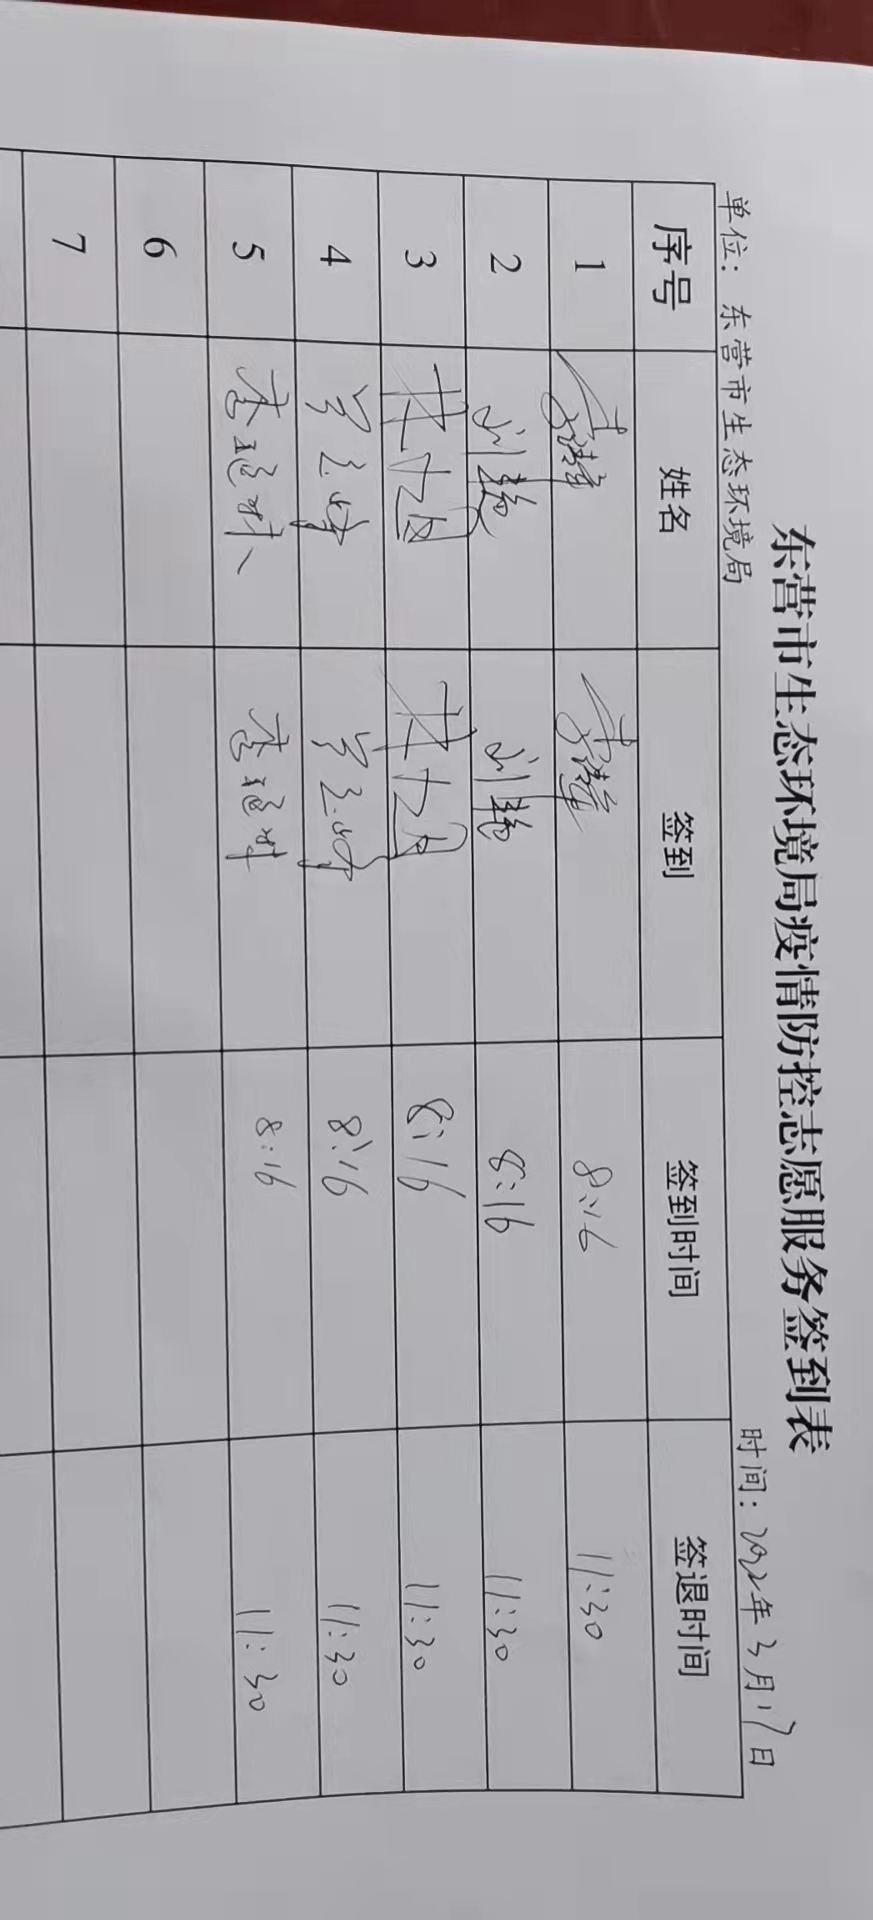 东营市生态环境局疫情防控志愿服务签到表
单位：东营市生态环境局 时间：2022年3月17日
序号 姓名 签到 签到时间 签退时间
1 8:16 11:30
2 刘艳 刘艳 8:16 11:30
3 8:16 11:30
4 8:16 11:30
5 8:16 11:30
6
7